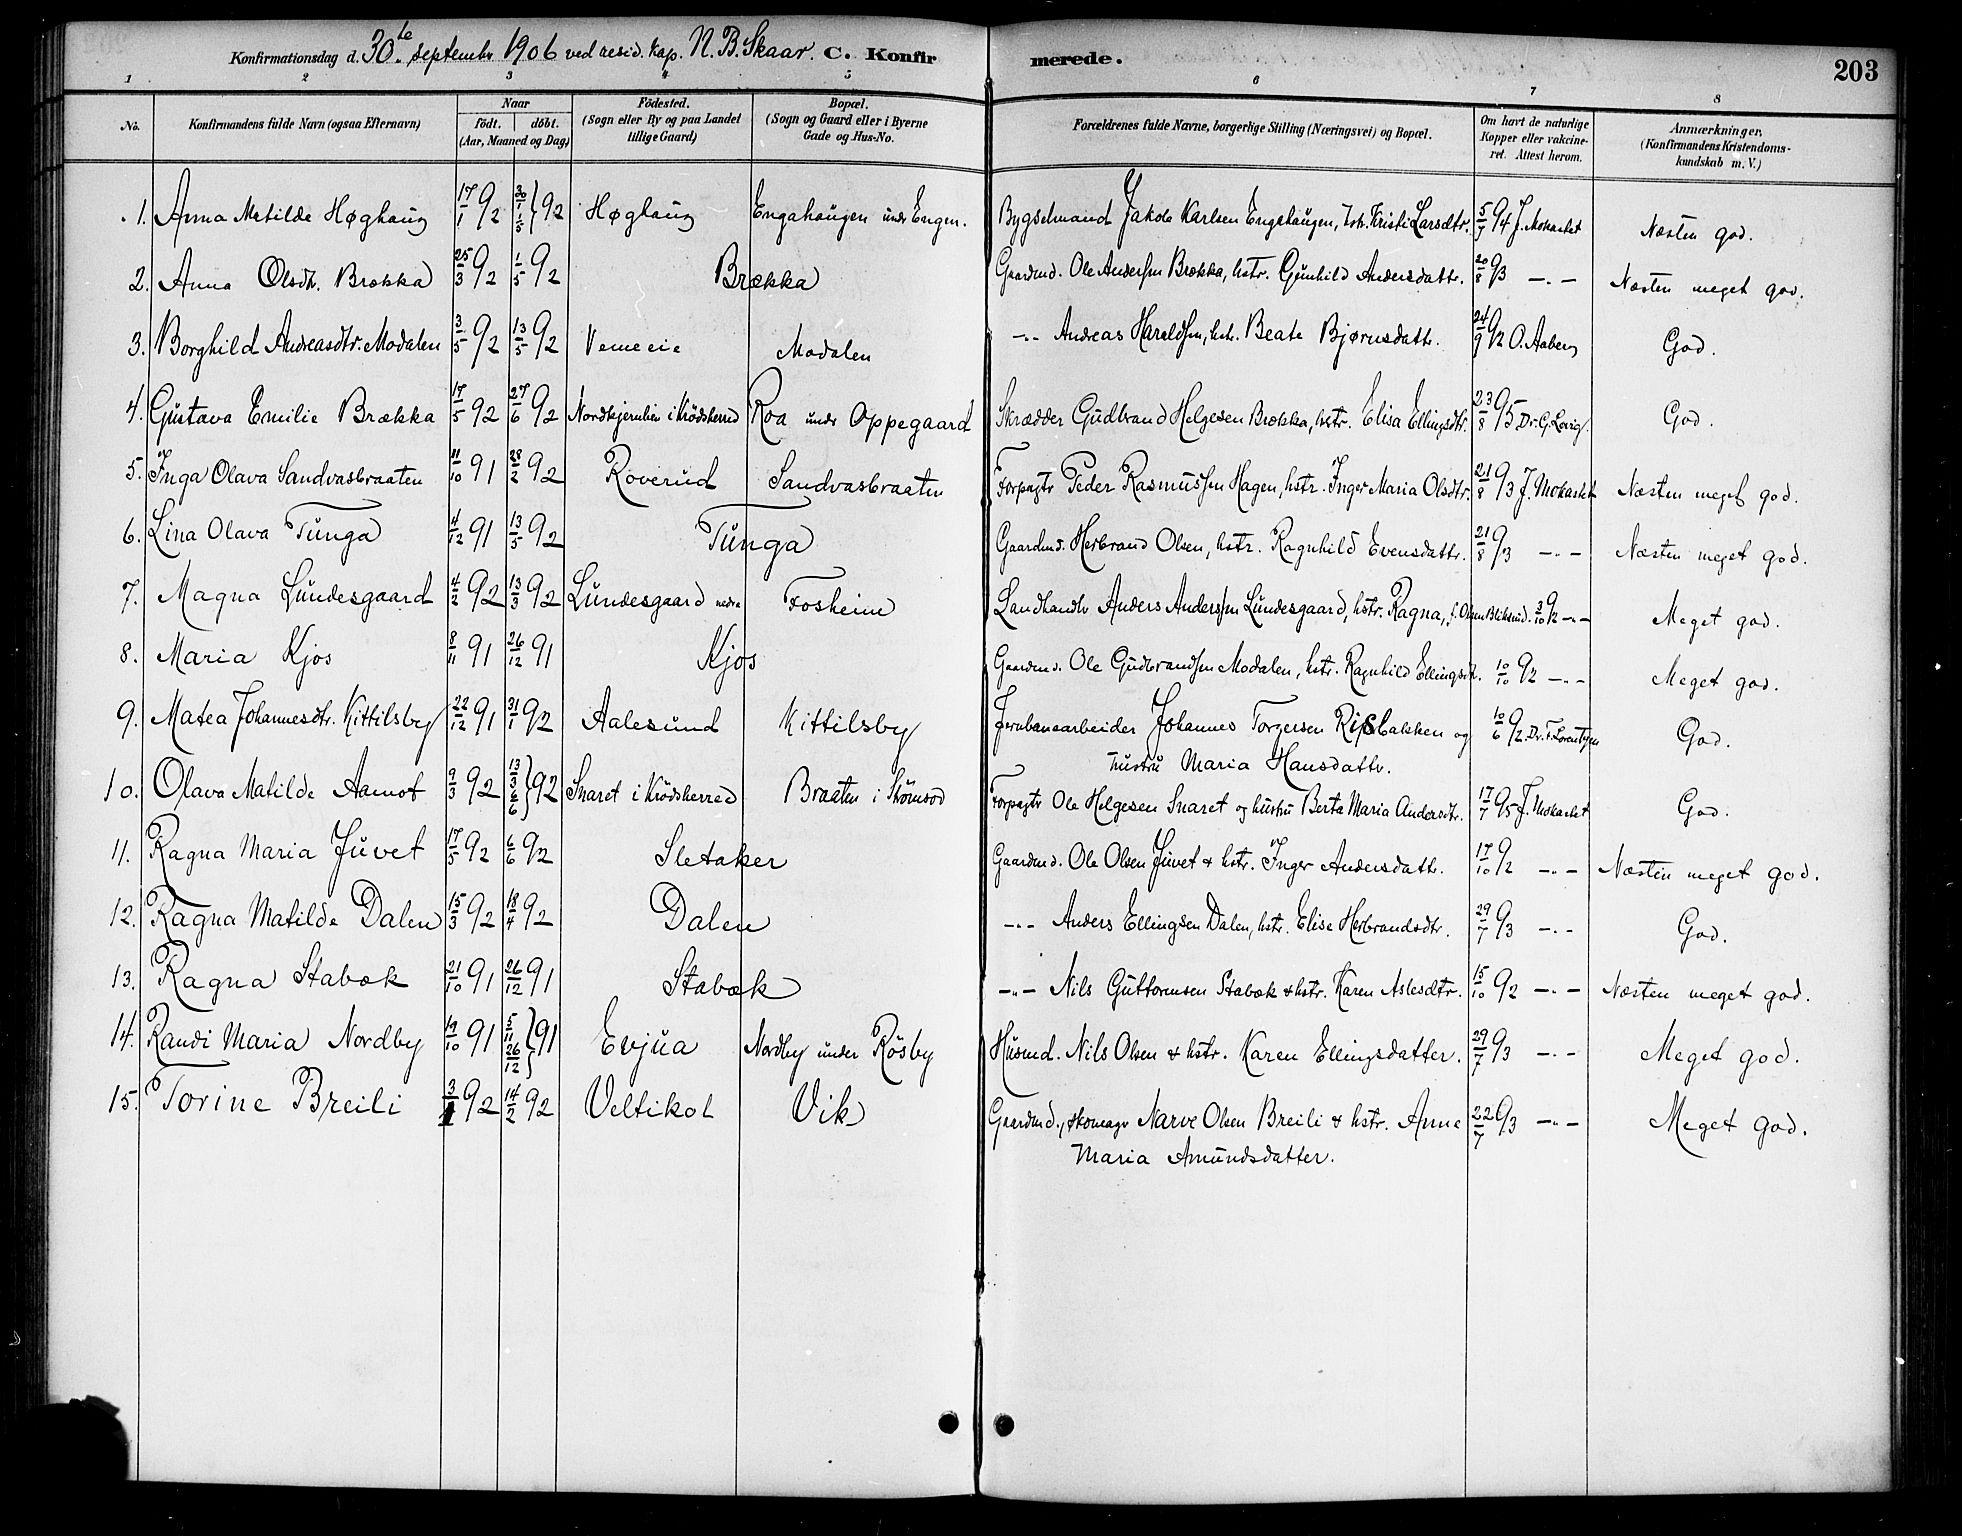 Konfirmationsdag d. 30te septembr 1906 ved resid. kap. N. B. Skaar. C. Konfirmerede. 203
1 2 3 4 5 6 7 8
No. Konfirmandens fulde Navn (ogsaa Efternavn) Naar født. døbt. (Aar, Maaned og Dag) Fødested. (Sogn eller By og paa Landet tillige Gaard) Bopæl. (Sogn og Gaard eller i Byerne Gade og Hus-No. Forældrenes fulde Navne, borgerlige Stilling (Næringsvei) og Bopæl. Om havt de naturlige Kopper eller vakcineret. Attest herom. Anmærkninger. (Konfirmandens Kristendomskundskab m. V.)
1. Anna Matilde Høghaug 17/1 92 30/1 1/5 } 92 Høghaug Engahaugen under Engen. Bygselmand Jakob Karlsen Engahaugen, hstr. Kristi Larsdtr. 5/7 94 J. Mokastet Næsten god.
2. Anna Olsdtr. Brække 25/3 92 1/5 92 Brækka Gaardmd. Ole Andersen Brækka, hstr. Gunhild Andersdattr. 20/8 93 -"- Næsten meget god.
3. Borghild Andreasdtr. Modalen 3/5 92 13/5 92 Vemeeie Modalen -"- Andreas Haraldsen, hstr. Beate Bjørnsdattr. 24/9 92 O. Aaberg God.
4. Gustava Emilie Brækka 17/5 92 27/6 92 Nordkjernlien i Krödsherred Roa under Oppegaard Skrædder Gudbrand Helgesen Brækka, hstr. Elisa Ellingsdtr. 23/8 95 Dr. G. Lovig. God.
5. Inga Olava Sandvasbraaten 11/10 91 28/2 92 Roverud Sandvasbraaten Forpagtr Peder Rasmussen Hagen, hstr. Inger Maria Olsdtr. 21/8 93 J. Mokastet Næsten meget god.
6. Lina Olava Tunga 4/12 91 13/5 92 Tunga Gaardmd. Herbrand Olsen, hstr. Ragnhild Evensdattr. 21/8 93 -"- Næsten meget god.
7. Magna Lundesgaard 4/2 92 13/3 92 Lundesgaard nedre Fosheim Landhandlr Anders Andersen Lundesgaard, hstr. Ragna, f. Olsen Bliksrud. 3/10 92 -"- Meget god.
8. Maria Kjos 8/11 91 26/12 91 Kjos Gaardmd. Ole Gudbrandsen Modalen, hstr. Ragnhild Ellingsdt. 10/10 92 -"- Meget god.
9. Matea Johannesdtr. Kittilsby 22/12 91 31/1 92 Aalesund Kittilsby Jernbanearbeider Johannes Torgersen Ripsbakken og 10/6 92. Dr. F. Lorentzen God.
hustru Maria Hansdattr.
10. Olava Matilde Aamot 9/3 92 13/3 6/6 } 92 Snaret i Krödsherred Braaten i Strømsod Forpagtr Ole Helgesen Snaret og hustru Berta Maria Andersdtr. 17/7 95 J. Mokastet God.
11. Ragna Maria Juvet 17/5 92 6/6 92 Sletaker Gaardmd. Ole Olsen Juvet & hstr. Inger Andersdattr. 17/10 92 -"- Næsten meget god.
12. Ragna Matilde Dalen 15/3 92 18/4 92 Dalen -"- Anders Ellingsen Dalen, hstr. Elise Herbrandsdtr. 29/7 93 -"- God.
13. Ragna Stabæk 21/10 91 26/12 91 Stabæk -"- Nils Guttormsen Stabæk & hstr. Karen Aslesdtr. 15/10 92 -"- Næsten meget god.
14. Randi Maria Nordby 19/10 91 5/11 26/12 } 91 Evjua Nordby under Rösby Husmd. Nils Olsen & hstr. Karen Ellingsdatter. 29/7 93 -"- Meget god.
15. Torine Breili 3/1 92 14/2 92 Veltikol Vik Gaardmd., skomagr Narve Olsen Breili & hstr. Anne 22/7 93 -"- Meget god.
Maria Amundsdatter.